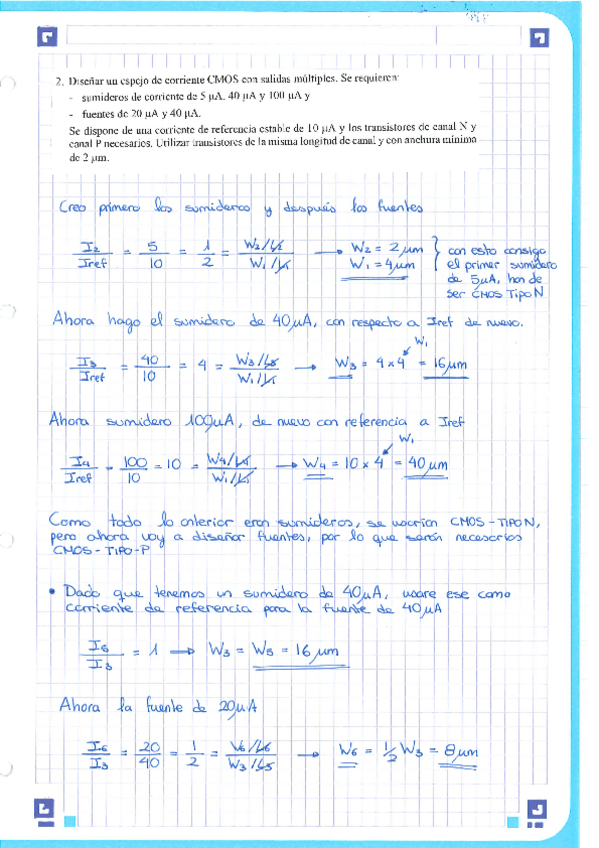 2. Diseñar un espejo de corriente CMOS con salidas múltiples. Se requieren:
- sumideros de corriente de 5 µA, 40 µA y 100 µA y
- fuentes de 20 µA y 40 µA.
Se dispone de una corriente de referencia estable de 10 µA y los transistores de canal N y
canal P necesarios. Utilizar transistores de la misma longitud de canal y con anchura mínima
de 2 µm.
Creo primero los sumideros y después las fuentes
I2/Iref = 5/10 = 1/2 = (W2/L2)/(W1/L1) → W2 = 2 µm W1 = 4 µm } con esto consigo
el primer sumidero
de 5µA, han de
ser CMOS Tipo N
Ahora hago el sumidero de 40µA, con respecto a Iref de nuevo.
W1
I3/Iref = 40/10 = 4 = (W3/L3)/(W1/L1) → W3 = 4 x 4 = 16 µm
Ahora sumidero 100µA, de nuevo con referencia a Iref
W1
I4/Iref = 100/10 = 10 = (W4/L4)/(W1/L1) → W4 = 10 x 4 = 40 µm
Como todo lo anterior eran sumideros, se usarían CMOS-TIPO N,
pero ahora voy a diseñar fuentes, por lo que serán necesarios
CMOS-TIPO-P
• Dado que tenemos un sumidero de 40µA, usare ese como
corriente de referencia para la fuente de 40µA
I6/I3 = 1 → W3 = W5 = 16 µm
Ahora la fuente de 20µA
I6/I3 = 20/40 = 1/2 = (V6/L6)/(W3/L5) → W6 = 1/2 W3 = 8 µm